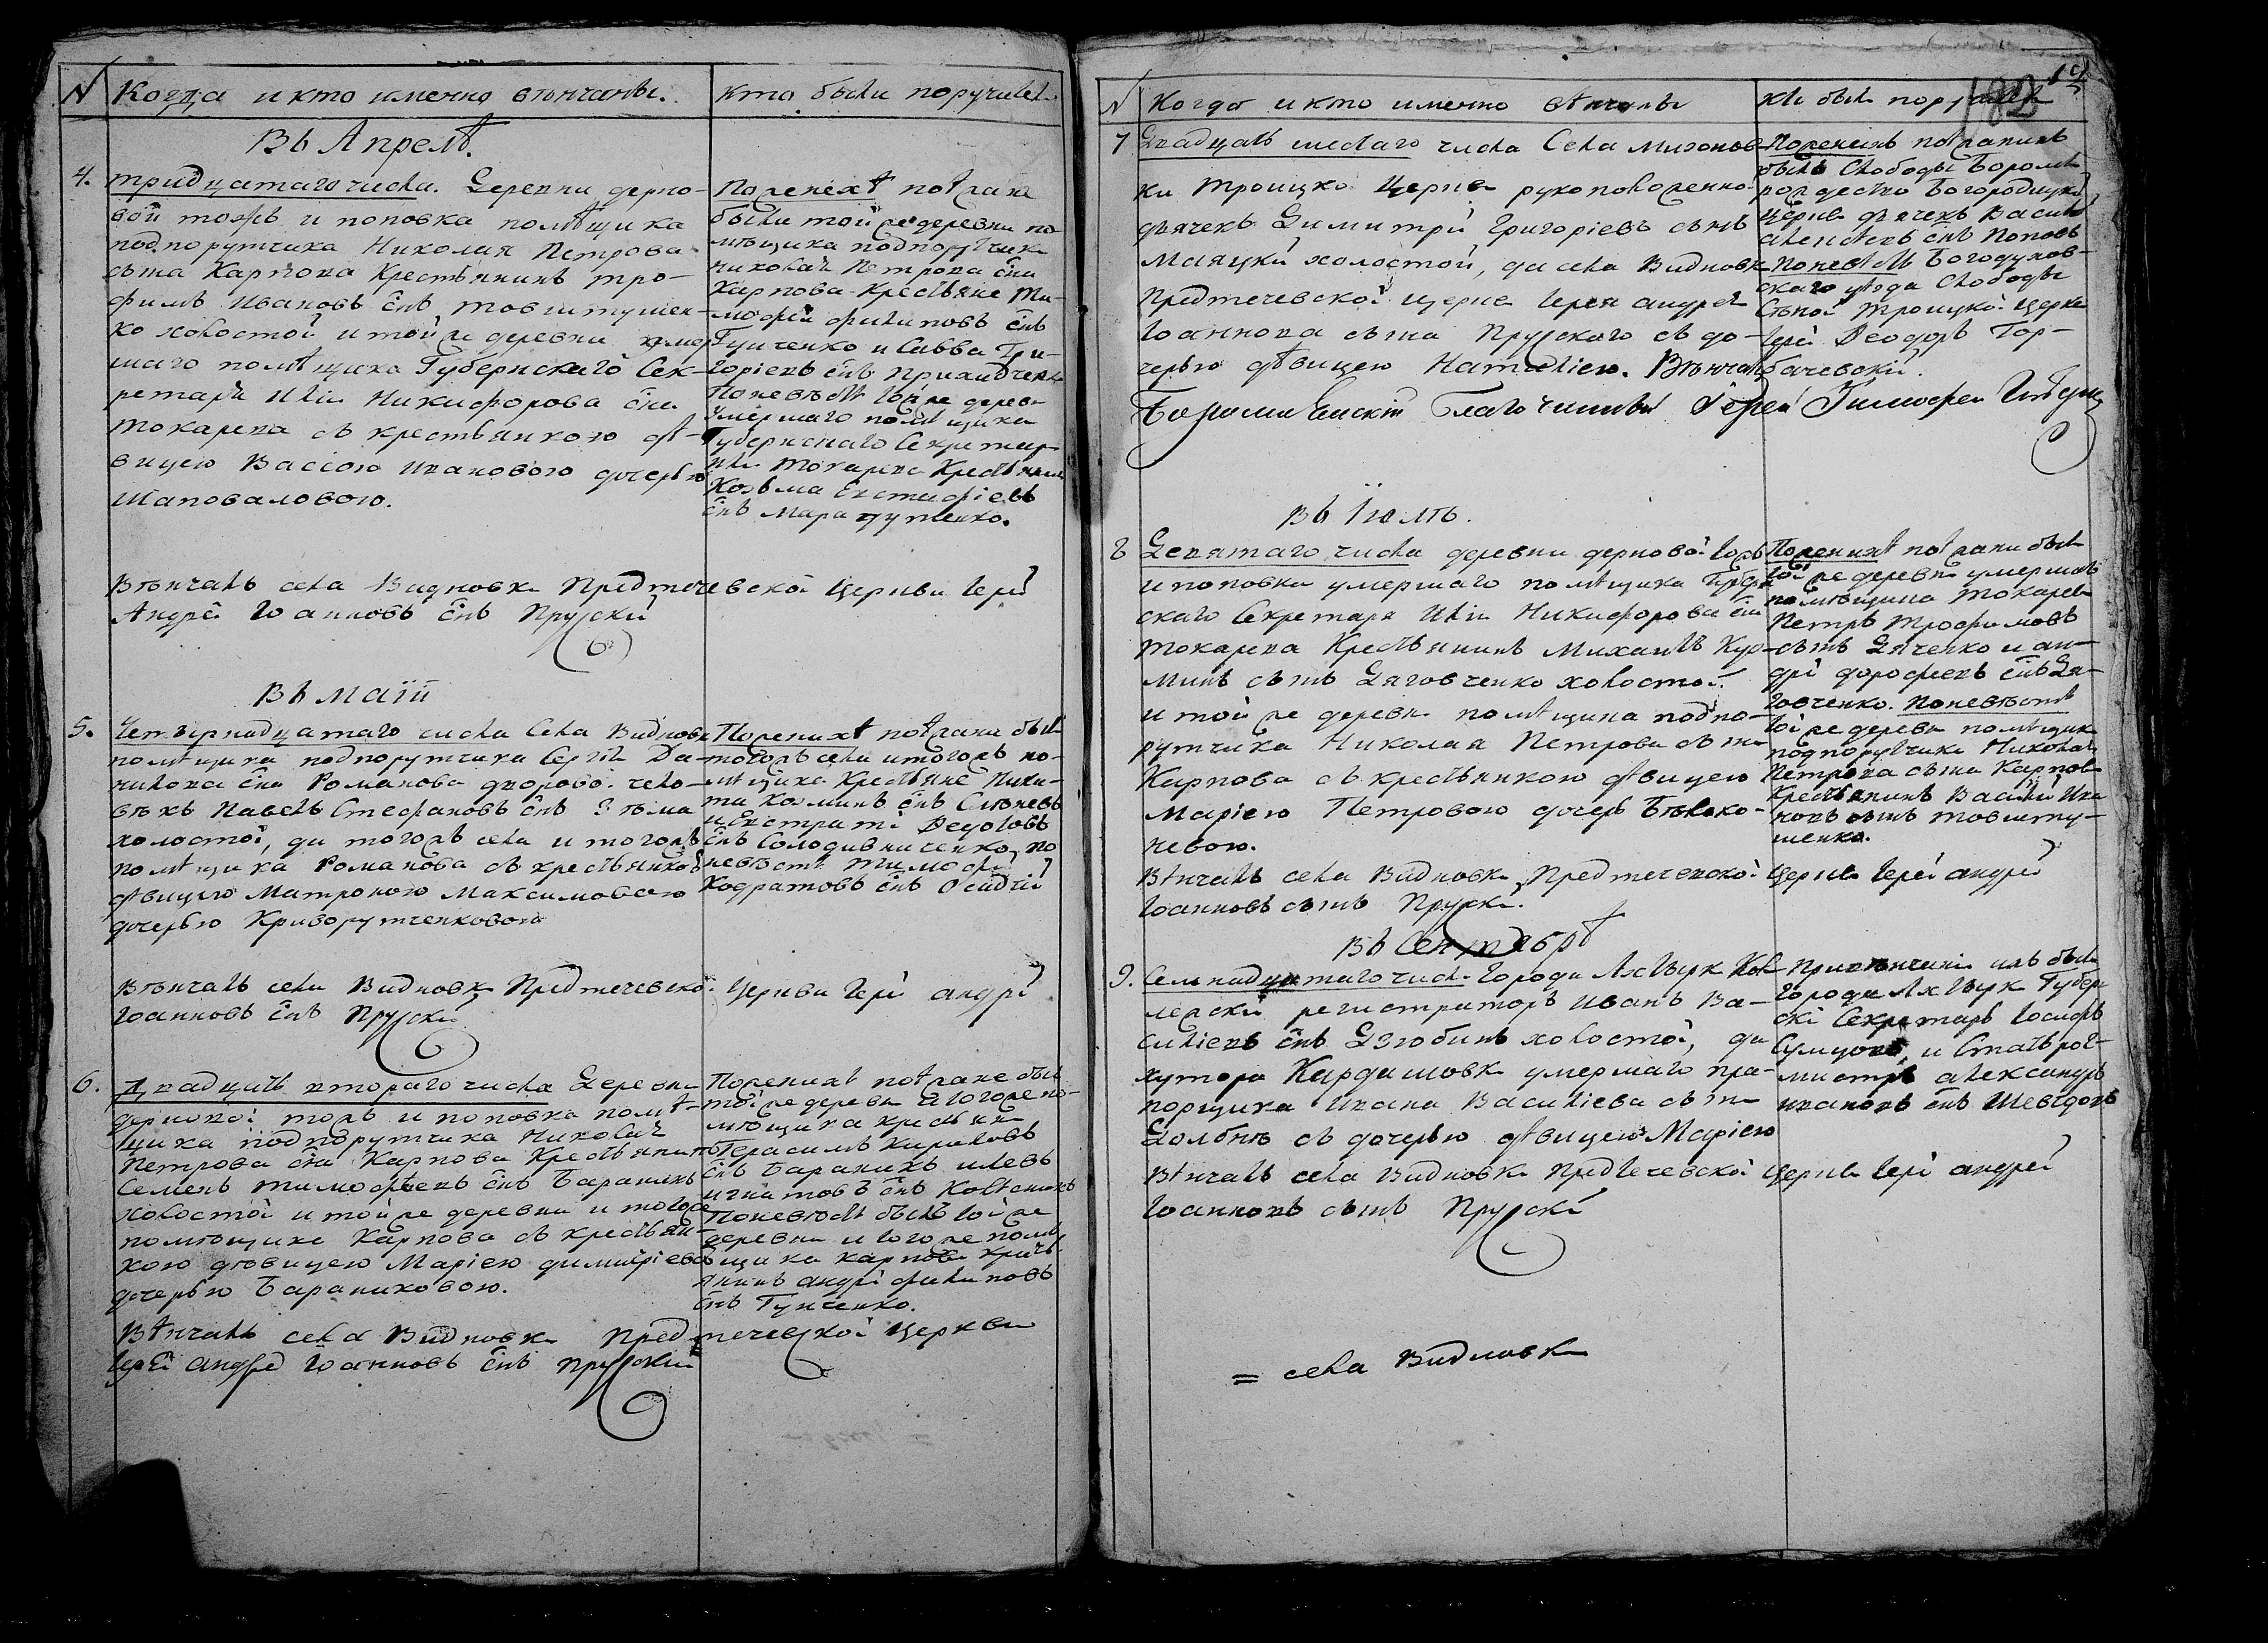 N Когда и кто именно вѣнчаны.
кто были поручители
Въ Апрелѣ.
4. тридцатаго числа. Деревни дерно-
вой тожъ и поповка помѣщика
подпорутчика Николая Петрова
сына Карпова Крестьянинъ тро-
фимъ Ивановъ снъ товштушен-
ко холостой, и той же деревни умер-
шаго помѣщика Губернскаго Сек-
ретаря Ильи Никифорова сна
токарева съ крестьянкою дѣ-
вицею Вассою Ивановою дочерью
Шаповаловою.
По женихѣ поѣзжане
были той же деревни по-
мѣщика подпорутчика
николая Петрова сна
Карпова Крестьяне Ти-
мофей филиповъ снъ
Гунченко и Савва Гри-
горіевъ снъ
По невѣстѣ той же деревни
умершаго помѣщика
Губернскаго Секретаря
Ильи токарева Крестьянинъ
Козьма Евстафіевъ
снъ
Вѣнчалъ села Видновки Предтечевской Церкви Іерей
Андрей Іоанновъ снъ Прускій
Въ маіи
5. Четырнадцатаго числа Села Видновки
помѣщика подпорутчика Сергѣя Да-
нилова сна Романова дворовой чело-
вѣкъ Павелъ Стефановъ снъ Зъма
холостой, да тогожъ села и тогожъ
помѣщика Романова съ крестьянкою
дѣвицею Матроною Максимовою
дочерью Криворутченковою
По женихѣ поѣзжане были
тогожъ села и тогожъ по-
мѣщика Крестьяне Ники-
та Козминъ снъ
и Евстратій Ѳедотовъ
снъ Солодивниченко, по
невѣстѣ тимофей
Кодратовъ снъ Осадчій
Вѣнчалъ села Видновки Предтечевской Церкви Іерей андрей
Іоанновъ снъ Прускій
6. Двадцать втораго числа Деревни
дерновой тожъ и поповка помѣ-
щика подпорутчика Николая
Петрова сна Карпова Крестьянинъ
Семенъ тимофѣевъ снъ Баранникъ
холостой и той же деревни и тогоже
помѣщика Карпова съ крестьян-
кою дѣвицею Маріею димитріевою
дочерью Бараниковою.
По женихѣ поѣзжане были
той же деревни и тогоже по-
мѣщика крестьяне
Герасимъ Кириловъ
снъ Бараникъ
игнатовъ снъ
По невѣстѣ былъ той же
деревни и того же помѣ-
щика карпова кресть-
янинъ андрей филиповъ
снъ Гунченко.
Вѣнчалъ села Видновки Предтечевской Церкви
Іерей андрей Іоанновъ снъ прускій
19
182
N Когда и кто именно вѣнчаны
кто были поручители
7 Двадцать шестаго числа Села Мизонов-
ки троицкой Церкви рукоположенной
дьячекъ Димитрій Григоріевъ сынъ
Маяцкій холостой, да села Видновки
Предтечевской церкви Іерея андрея
Іоаннова сына Прускаго съ до-
черью дѣвицею Наталіею. Вѣнчалъ
Боромлянскій Благочинный Іерей Тимофей
По женихѣ поѣзжанинъ
былъ Слободы Боромли
рождество Богородицкой
церкви дьячекъ Василій
алексѣевъ снъ Поповъ
По невѣстѣ Богодухов-
скаго уѣзда Слободы
Сѣнной троицкой церкви
Іерей Ѳеодоръ Гор-
бачевскій.
Въ Іюлѣ.
8 Девятаго числа деревни дерновой тожъ
и поповки умершаго помѣщика Губерн-
скаго Секретаря Ильи Никифорова сна
токарева Крестьянинъ Михаилъ Куз-
минъ сынъ Дяговченко холостой.
и той же деревни помѣщика подпо-
рутчика Николая Петрова сына
Карпова съ крестьянкою дѣвицею
Маріею Петровою дочерью Бѣлоко-
невою.
По женихѣ поѣзжани были
той же деревни умершаго
помѣщика токарева
Петръ трофимовъ
сынъ Дяченко и ан-
дрей дорофеевъ снъ Дя-
говченко. По невѣстѣ
той же деревни помѣщика
подпорутчика Николая
Петрова сына Карпова
Крестьянинъ Василій Ива-
новъ сынъ товшту-
шенко.
Вѣнчалъ села Видновки Предтечевской Церкви Іерей андрей
Іоанновъ сынъ Прускій.
Въ Сентябрѣ
9. Семнадцатаго числа Города Ахтырки Кол-
лежскій регистраторъ Иванъ Ва-
силіевъ снъ Дзюбинъ холостой, да
хутора Кардашовки умершаго пра-
порщика Ивана Василіева сына
съ дочерью дѣвицею Маріею
При вѣнчаніи ихъ были
Города Ахтырки Губерн-
скій Секретарь Іосифъ
Сумцовъ, и Штабъ рот-
мистръ александръ
ивановъ снъ Шевѣдовъ
Вѣнчалъ села Видновки Предтечевской Церкви Іерей андрей
Іоанновъ сынъ Прускій
= села Видновки